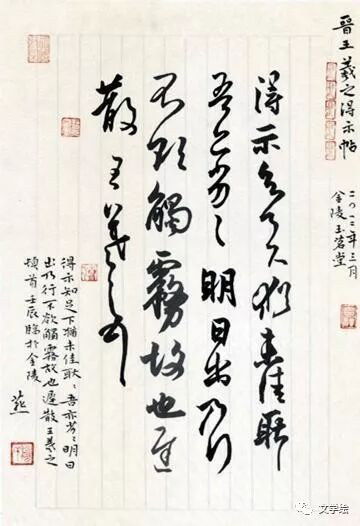 晋王羲之得示帖
二〇一二年三月
金陵玉茗堂
得示知足下犹未佳耿
吾亦劣劣明日出乃行
不欲觸霧故也遲
散王羲之頓首
得示知足下猶未佳耿〻吾亦劣〻明日
出乃行不欲觸霧故也遲散王羲之
頓首壬辰臨於金陵
文学绘